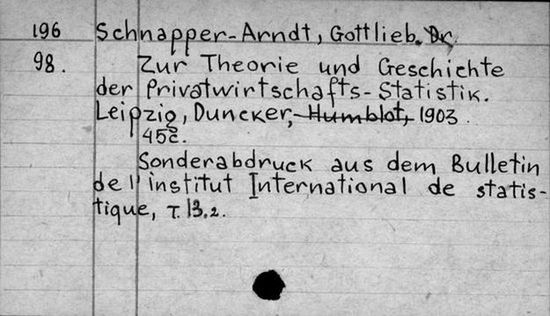 196 Schnapper-Arndt, Gottlieb. Dr.
98. Zur Theorie und Geschichte
der Privatwirtschafts-Statistik.
Leipzig, Duncker, Humblot, 1903.
45c.
Sonderabdruck aus dem Bulletin
de l'institut International de statis-
tique, T. 13.2.